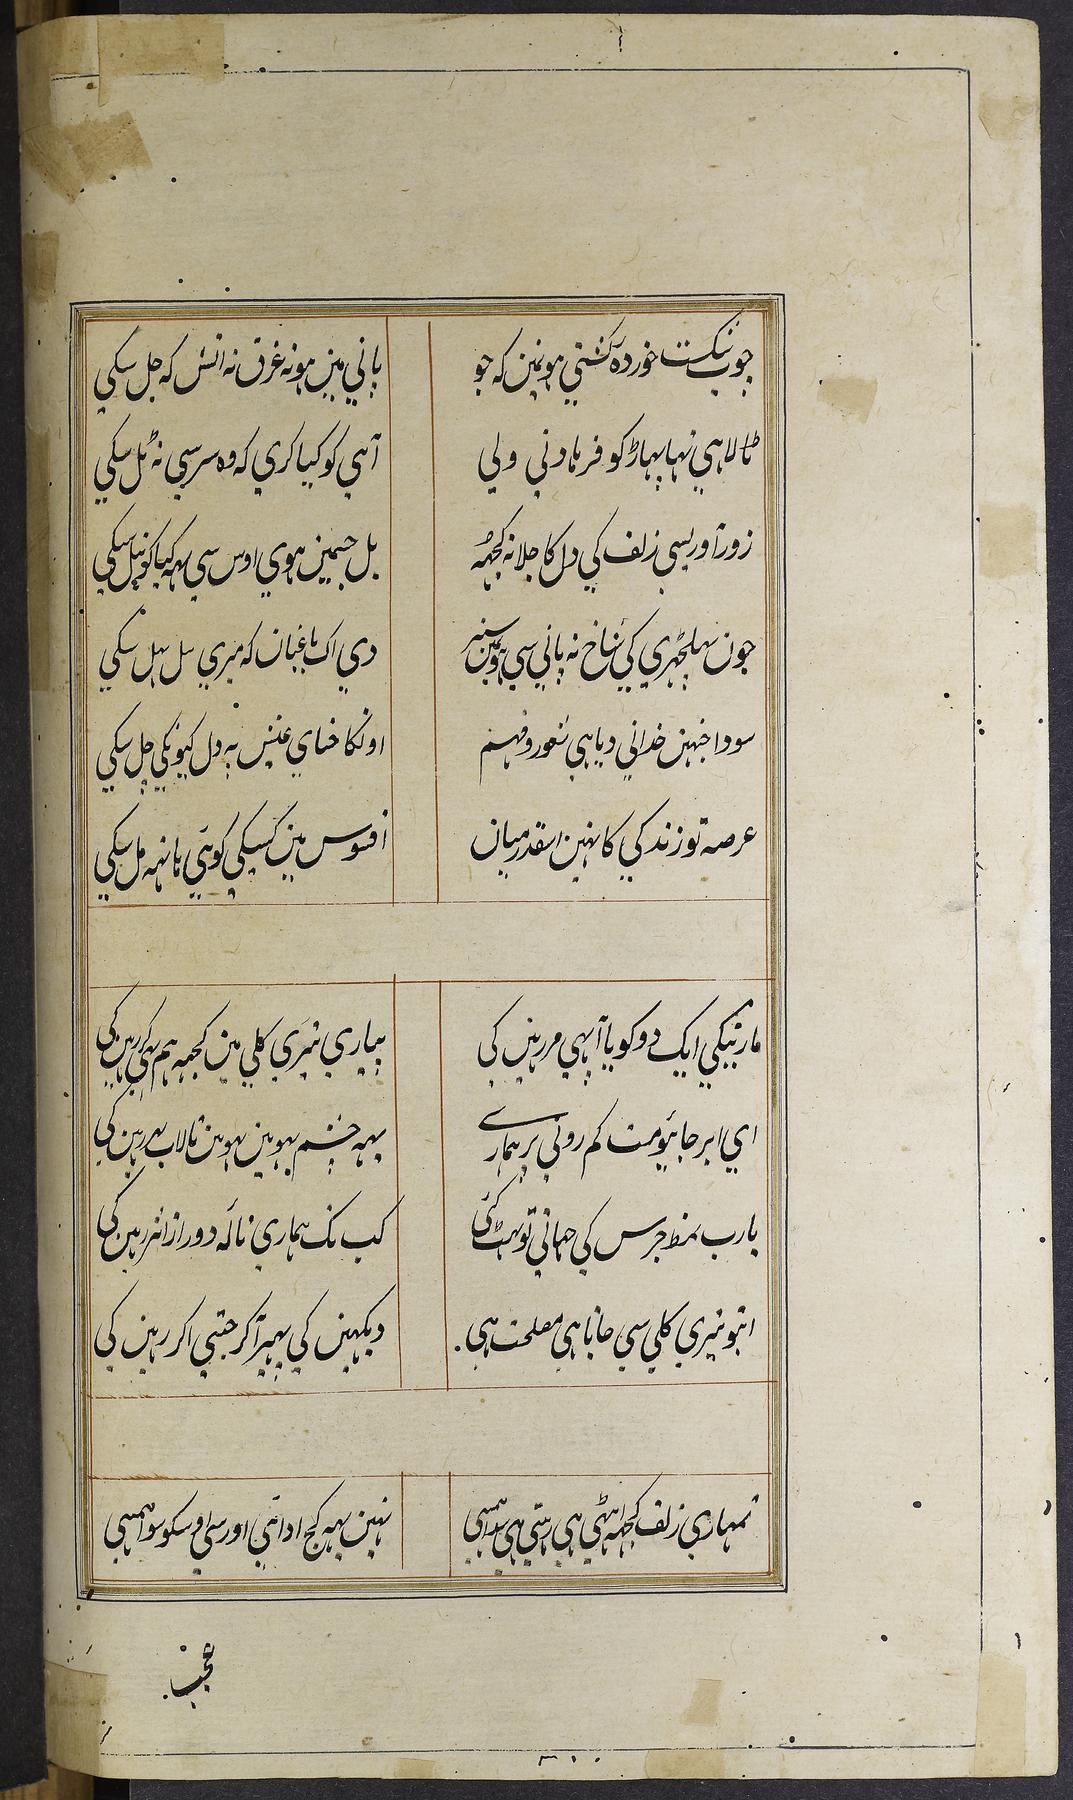 چوب شکست خورده کشتی ہونمین کہ جو
پانی مین ہو نہ غرق نہ اتش کہ جل سکی
ٹالا ہی تہا پہاڑ کو فرہاد نی ولی
آہی کو کیا کری کہ وہ سر سی نہ ٹل سکی
زور آوریسی زلف کی دل کا چلا نہ کچہہ
بل جسمین ہوی اوس سی یہہ کیا کو نکل سکی
جون پہلجہڑی کی شاخ نہ پانی سی ہونمین سبز
دی اک باغبان کہ میری پہل سکی
سودا جنہین خدانی دیا ہی شعور و فہم
اونکا خیای غنس پہ دل کیونکی چل سکی
عرصہ تو زندگی کا نہین اسقدر میان
افسوس مین کسیکی کوئی ہاتہہ مل سکی
مارینکی ایک دو کو یا آپہی مر رہین کی
پیاری تیری کلی مین کچہہ ہم بہی کر رہین کی
ای ابر جائیو مت کم رونی پر ہمارے
یہہ چشم یہوہین یہوہین تالاب بہر رہین کی
یارب نمط جرس کی چہاتی تو پہٹ گئی
کب تک ہماری نالہ دور از اثر رہین کی
ابتو تیری کلی سی جانا ہی مصلحت ہی
دیکہین کی پہر آکر جیتی اکر رہین کی
تمہاری زلف کچہہ اینٹہی ہی رہتی ہی سدا ہمسی
نہین یہہ کج ادائی اور سی اوسکو سوا ہمسی
عجب